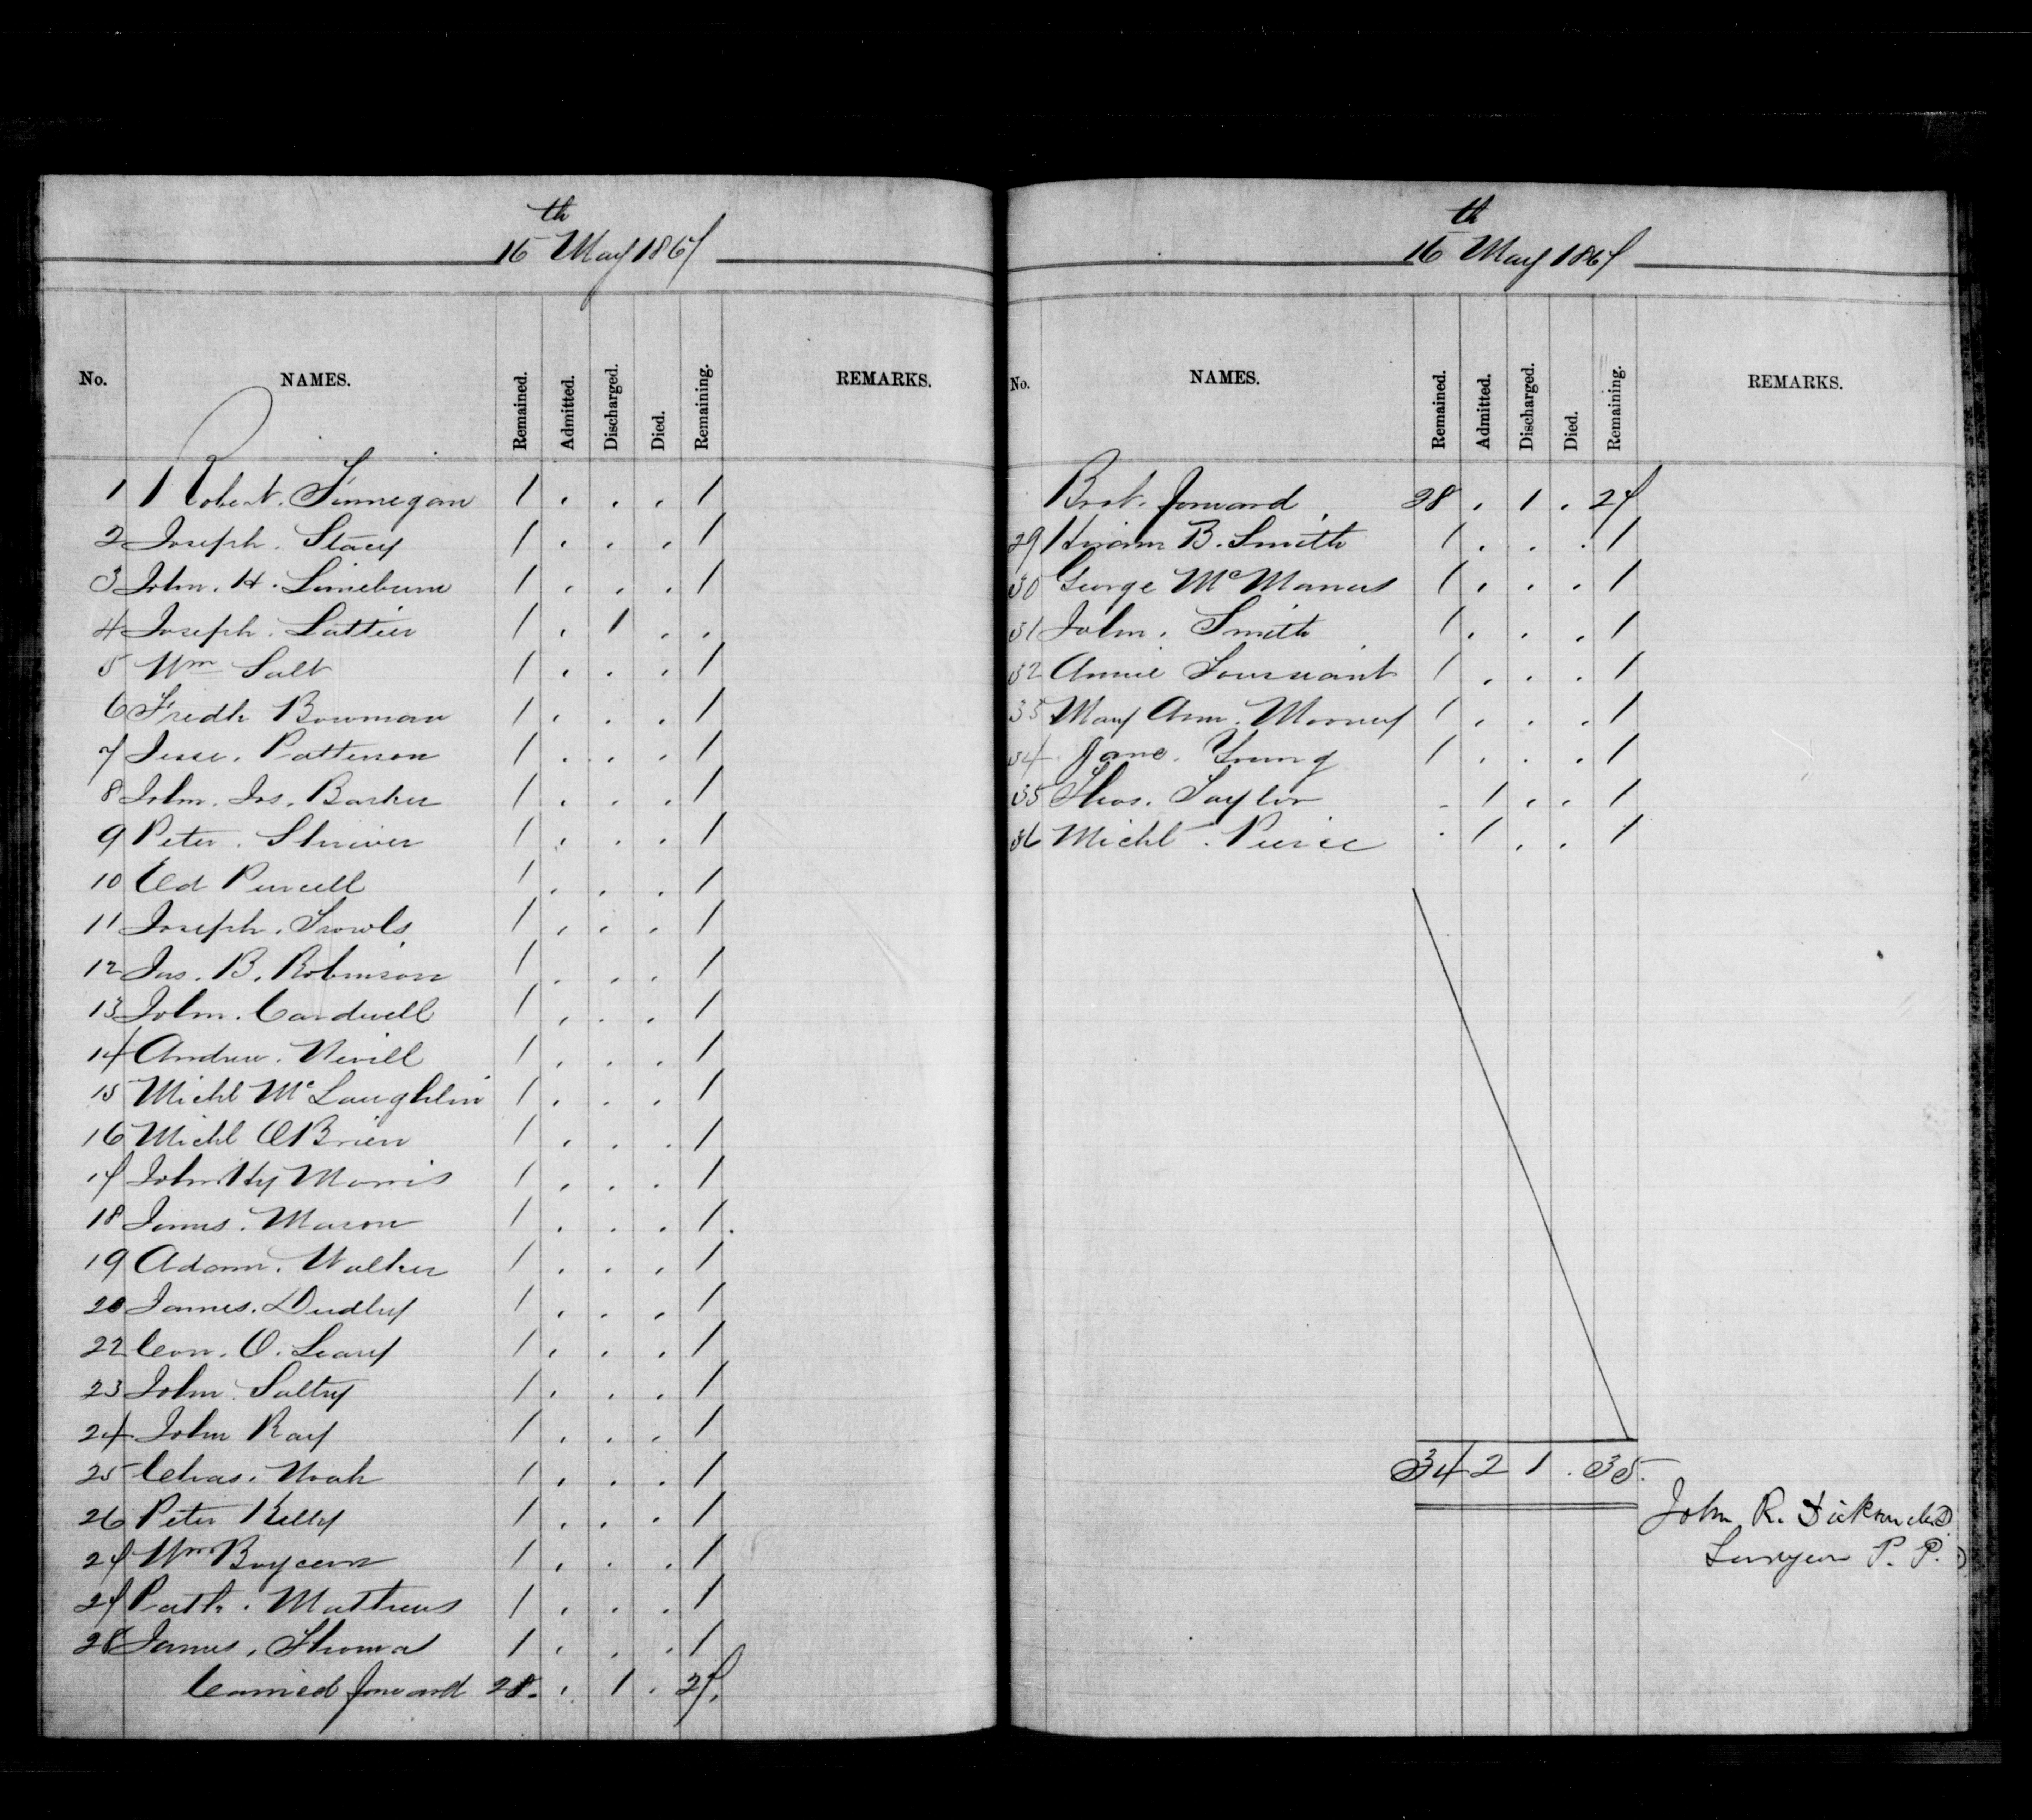 16th May 1867
No. NAMES. Remained. Admitted. Discharged. Died. Remaining. REMARKS.
1 Robert. Finnegan 1 . . . 1
2 Joseph. Stacy 1 . . . 1
3 John. H. Limeburn 1 . . . 1
4 Joseph. Lattier 1 . 1 . .
5 Wm Salt 1 . . . 1
6 Fredk Bowman 1 . . . 1
7 Jesse. Patterson 1 . . . 1
8 John. Jos. Barker 1 . . . 1
9 Peter. Shriver 1 . . . 1
10 Ed Purcell 1 . . . 1
11 Joseph. Trowls 1 . . . 1
12 Jas. B. Robinson 1 . . . 1
13 John. Cardwell 1 . . . 1
14 Andrew. Nevill 1 . . . 1
15 Michl McLaughlin 1 . . . 1
16 Michl OBrien 1 . . . 1
17 John Hy Morris 1 . . . 1
18 James. Mason 1 . . . 1.
19 Adam. Walker 1 . . . 1
20 James. Dudley 1 . . . 1
22 Corn. O. Leary 1 . . . 1
23 John Saltry 1 . . . 1
24 John Ray 1 . . . 1
25 Chas. Noah 1 . . . 1
26 Peter Kelly 1 . . . 1
27 Wm Boyceen 1 . . . 1
27 Patk. Mathews 1 . . . 1
28 James. Thomas 1 . . . 1
Carried forward 28. . 1 . 27.
16th May 1867
No. NAMES. Remained. Admitted. Discharged. Died. Remaining. REMARKS.
Brot. forward. 28 . 1 . 27
29 Hiram B. Smith 1 . . . 1
30 George McManus 1 . . . 1
31 John. Smith 1 . . . 1
32 Annie Toussaint 1 . . . 1
33 Mary Ann. Mooney 1 . . . 1
34 Jane. Young 1 . . . 1
35 Thos. Taylor . 1 . . 1
36 Michl. Pierce . 1 . . 1
34 2 1 . 35.
John R. Dickson M.D.
Surgeon P. P.